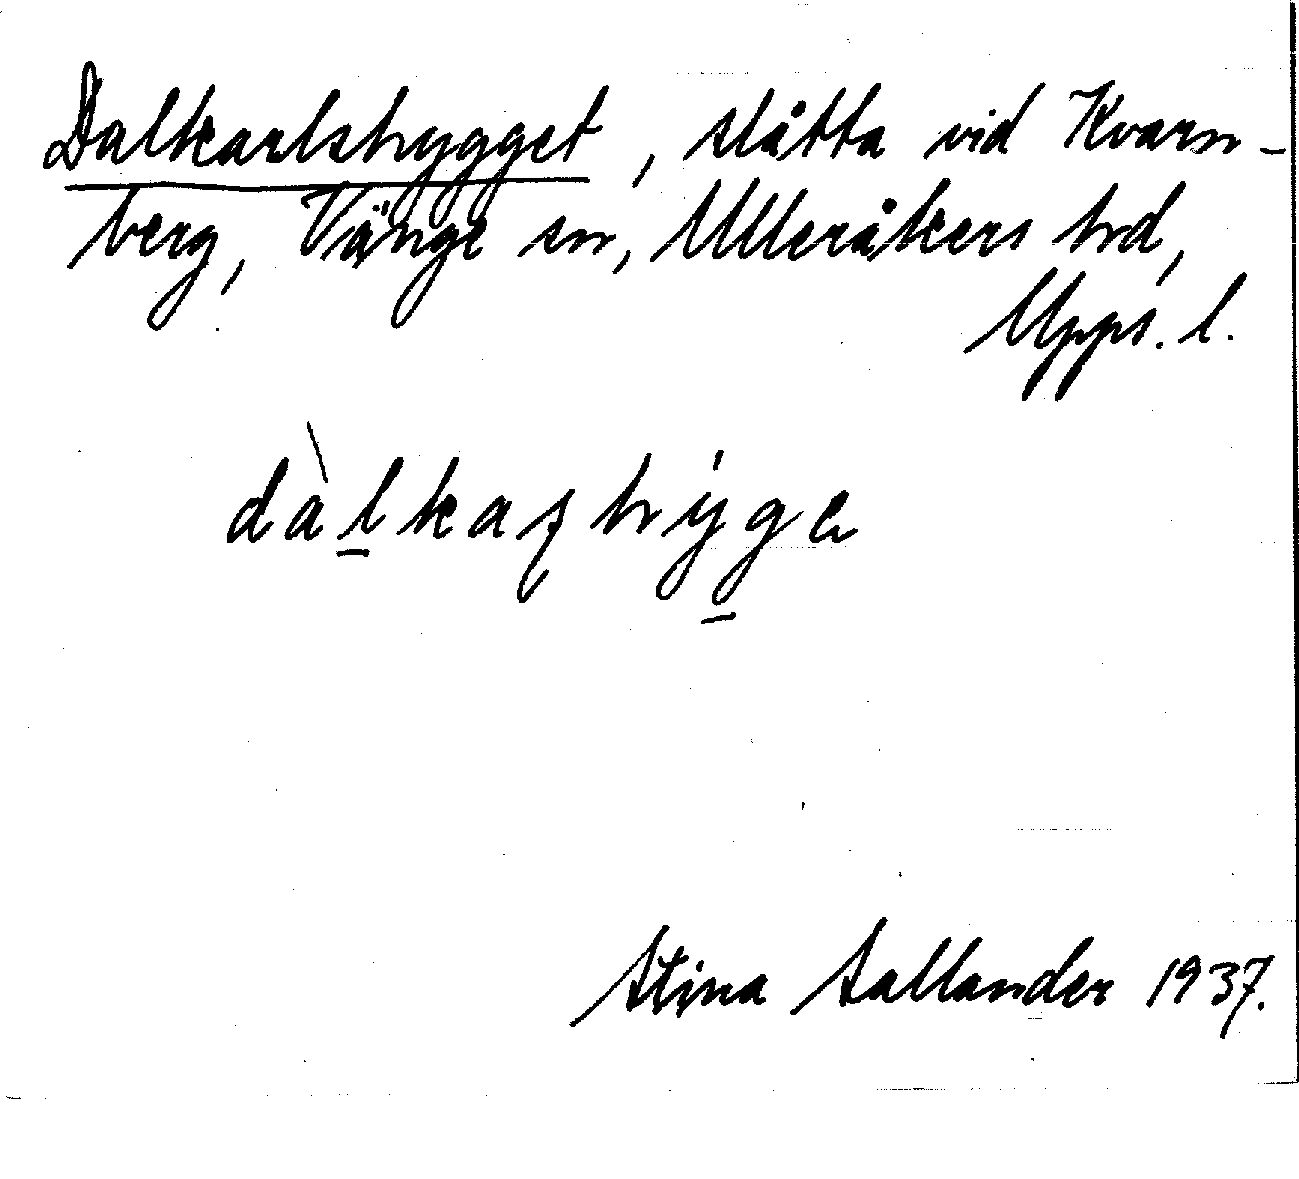 Dalkarlshygget, slåtta vid Kvarn-
berg, Vänge sn, Ulleråkers hd,
Upps. l.
dàl̲kaʂhyg̲e
Stina Sallander 1937.